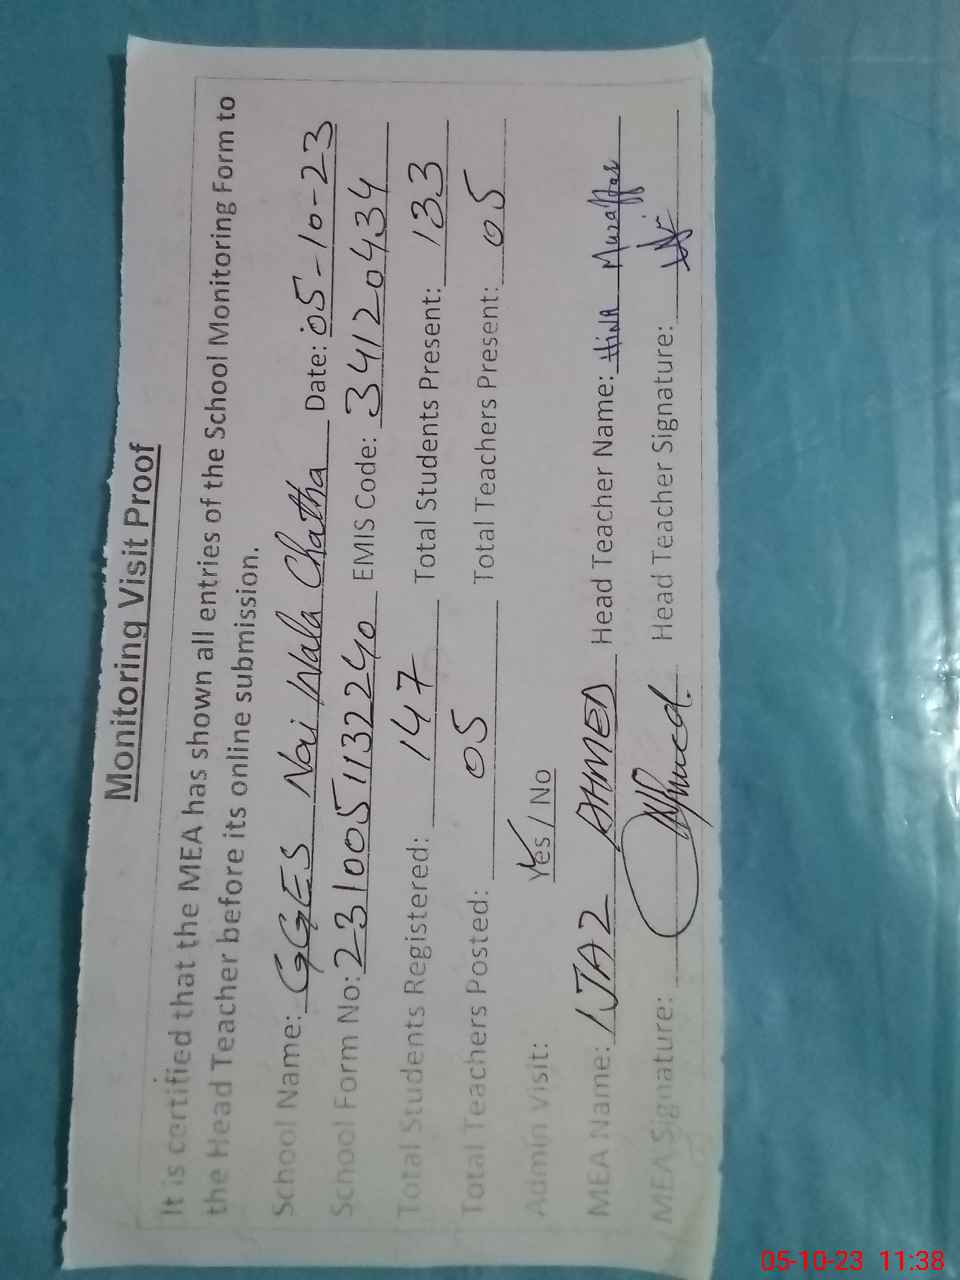 Monitoring Visit Proof
It is certified that the MEA has shown all entries of the School Monitoring Form to
the Head Teacher before its online submission.
School Name: GGES Noi Wala Chatha Date: 05-10-23
School Form No: 231005113240 EMIS Code: 34120434
Total Students Registered: 147 Total Students Present: 133
Total Teachers Posted: 05 Total Teachers Present: 05
Admin Visit: Yes / No
MEA Name: IJAZ AHMED Head Teacher Name: Hina Muzaffar
MEA Signature: Ahmed. Head Teacher Signature:
05-10-23 11:38